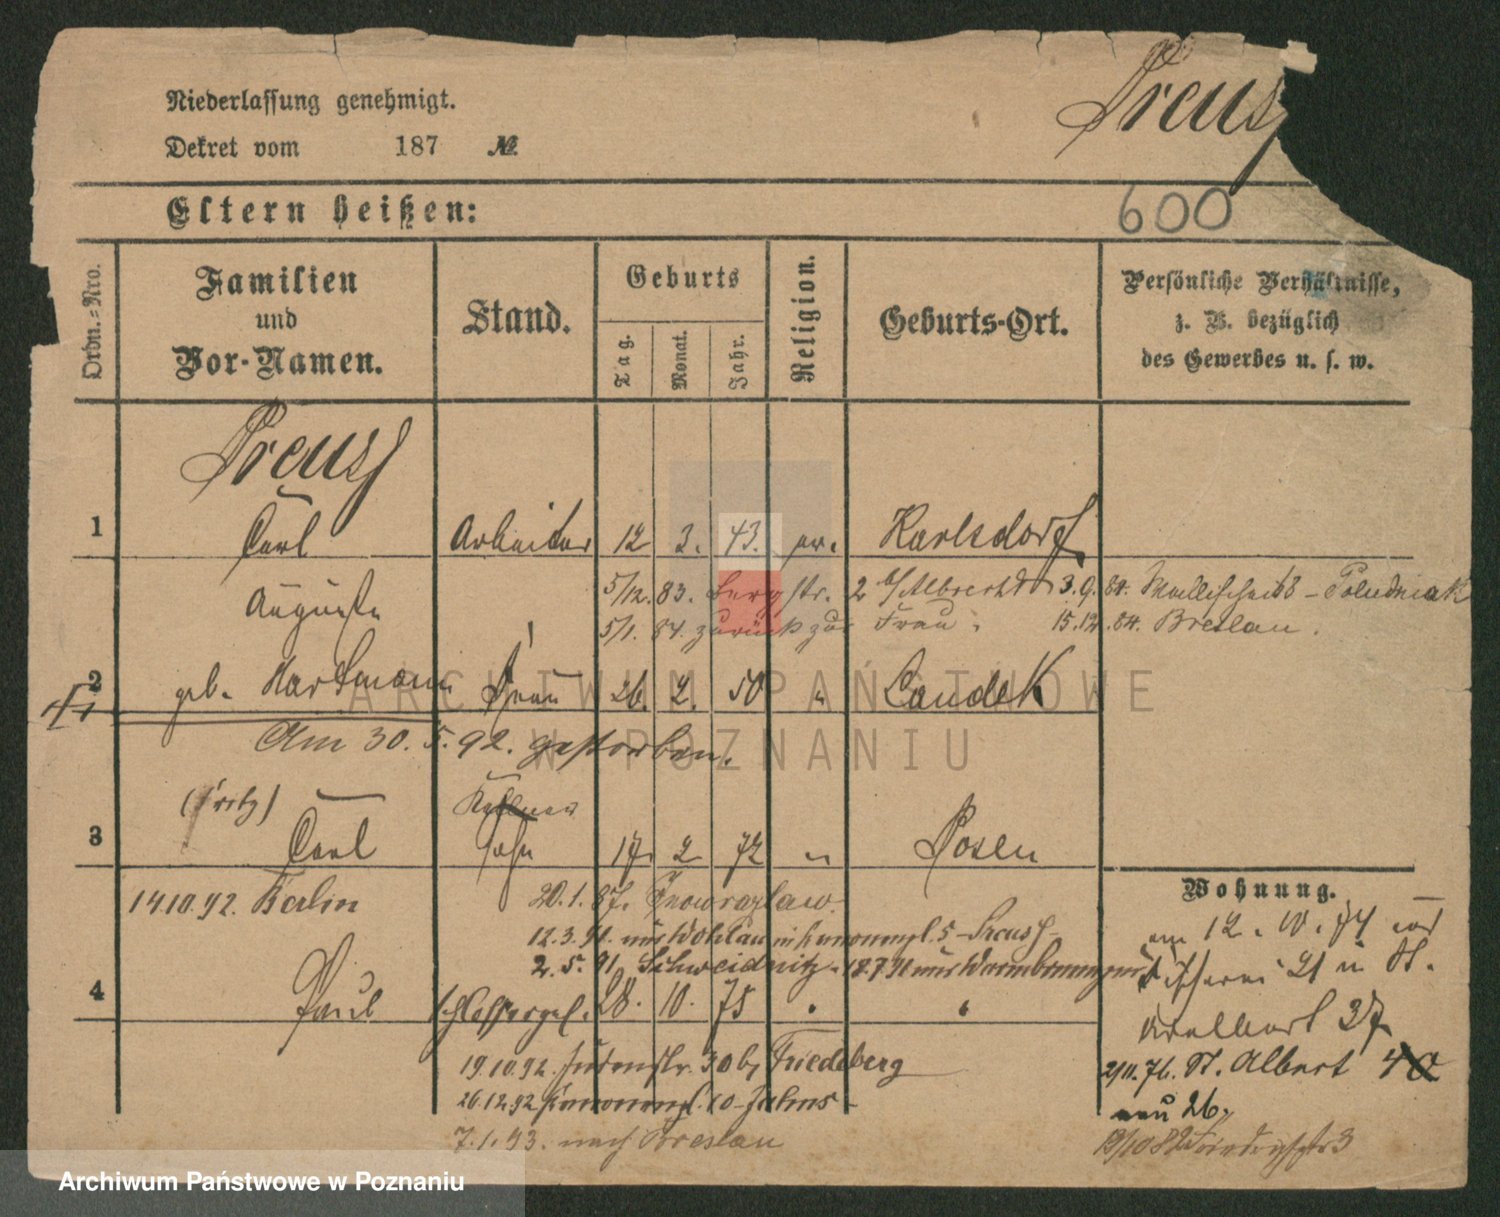 Niederlassung genehmigt.
Preuss
Dekret vom 187 №
600
Eltern heißen:
Ordn.=Nro.
Familien und Vor-Namen.
Stand.
Geburts
Tag.
Monat.
Jahr.
Religion.
Geburts-Ort.
Persönliche Verhältnisse, z. B. bezüglich des Gewerbes u. s. w.
Preuss
1 Carl Arbeiter 12 3. 43. ev. Karlsdorf
5/12. 83. Bergstr. 2 b/Albrecht 3.9. 84. - Poludniak
Auguste
5/1. 84. zurück zur Frau. 15.12.84. Breslau.
2 geb. Hartmann Frau 26. 2. 50 " Landek
Am 30. 5. 92. gestorben.
(Fritz) Kellner
3 Carl Sohn 17. 2 72 " Posen
Wohnung.
14 10. 92. Berlin 20. 1. 87. Inowrazlaw.
12. 3. 91. aus Wohlau Kanonenpl. 5 - Preuss -
2. 5. 91. Schweidnitz - 18.7.91 aus Warmbrunn
4 Paul Schlossergel. 28. 10. 75 " "
am 12. 10. 74
Fischerei 21 St.
Adalbert 37.
19. 10. 92. Judenstr. 30 b/ Friedeberg
2/11. 76. St. Albert 40
26. 12. 92 Kanonenpl. 10 - Jahns -
neu 26.
7. 1. 93. nach Breslau
13/10 82 Friedrichstr 3
ARCHIWUM PAŃSTWOWE
W POZNANIU
Archiwum Państwowe w Poznaniu